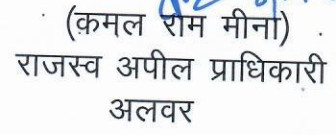 (क़मल राम मीना)
राजस्व अपील प्राधिकारी
अलवर